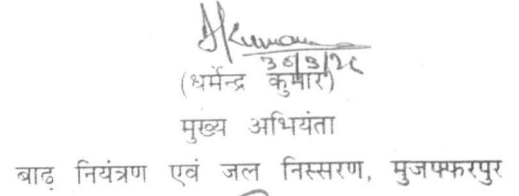 AKumar
(धर्मेन्द्र कुमार)
मुख्य अभियंता
बाढ़ नियंत्रण एवं जल निस्सरण, मुजफ्फरपुर